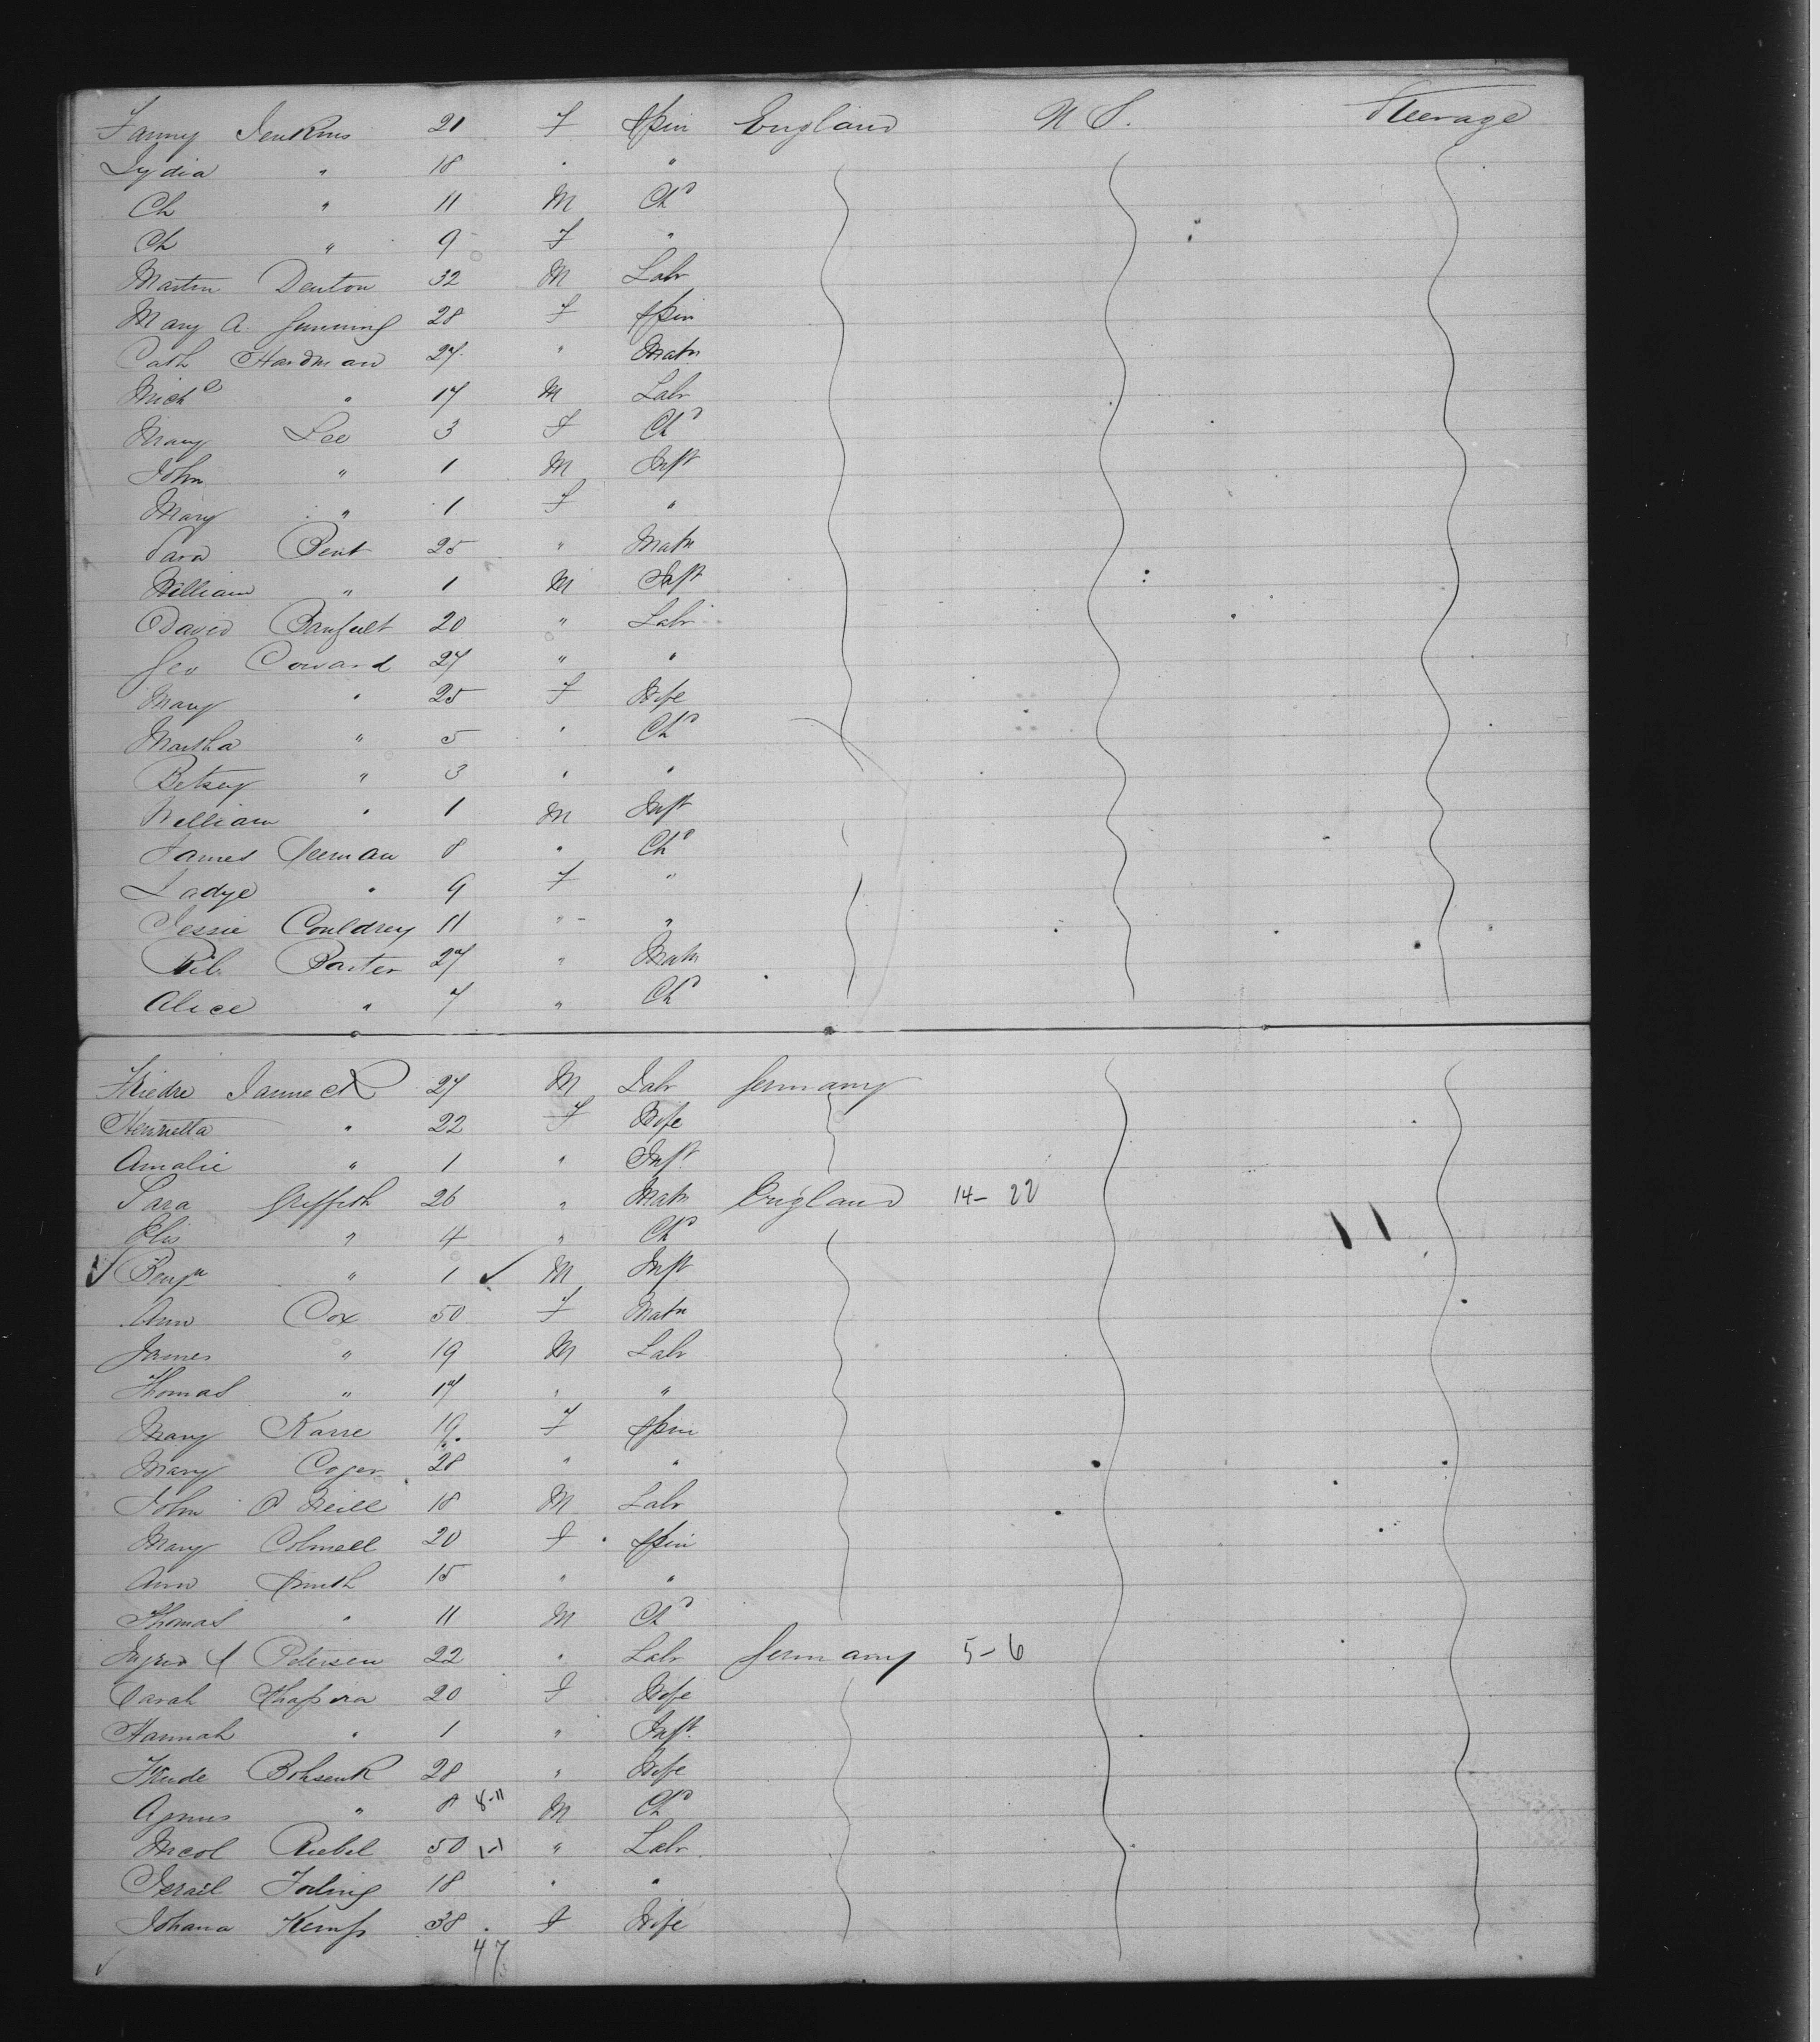 Fanny Jenkins 21 F Spin England U S. Steerage
Lydia " 18 " "
Ch " 11 M Chd
Ch " 9 F "
Martin Denton 32 M Labr
Mary A. Gunning 28 F Spin
Cath Hardman 27 " Matn
Michl " 17 M Labr
Mary Lee 3 F Chd
John " 1 M Inft
Mary " 1 F "
Sara Bent 25 " Matn
William " 1 M Inft
David 20 " Labr
Geo Coward 27 " "
Mary " 25 F Wife
Martha " 5 " Chd
Betsey " 3 " "
William " 1 M Inft
James 8 " Chd
Ladye " 9 F "
Jessie Couldrey 11 " "
27 " Matn
Alice " 7 " Chd
Friedre Janneck 27 M Labr Germany
Henrietta " 22 F Wife
Amalie " 1 " Inft
Sara Griffith 26 " Matn England 14- 22
Elis " 4 " Chd
Benjn " 1 M Inft
Ann Cox 50 F Matn
James " 19 M Labr
Thomas " 17 " "
Mary Karre 19 F Spin
Mary Coger 28 " "
John O Neill 18 M Labr
Mary Colmell 20 F Spin
Ann Smith 15 " "
Thomas " 11 M Chd
Petersen 22 " Labr Germany 5-6
Sarah Shapira 20 F Wife
Hannah " 1 " Inft
28 " Wife
Agnus " 8 8-11 M Chd
50 " Labr
Israel 18 " "
Johana Kemp 38 F Wife
47